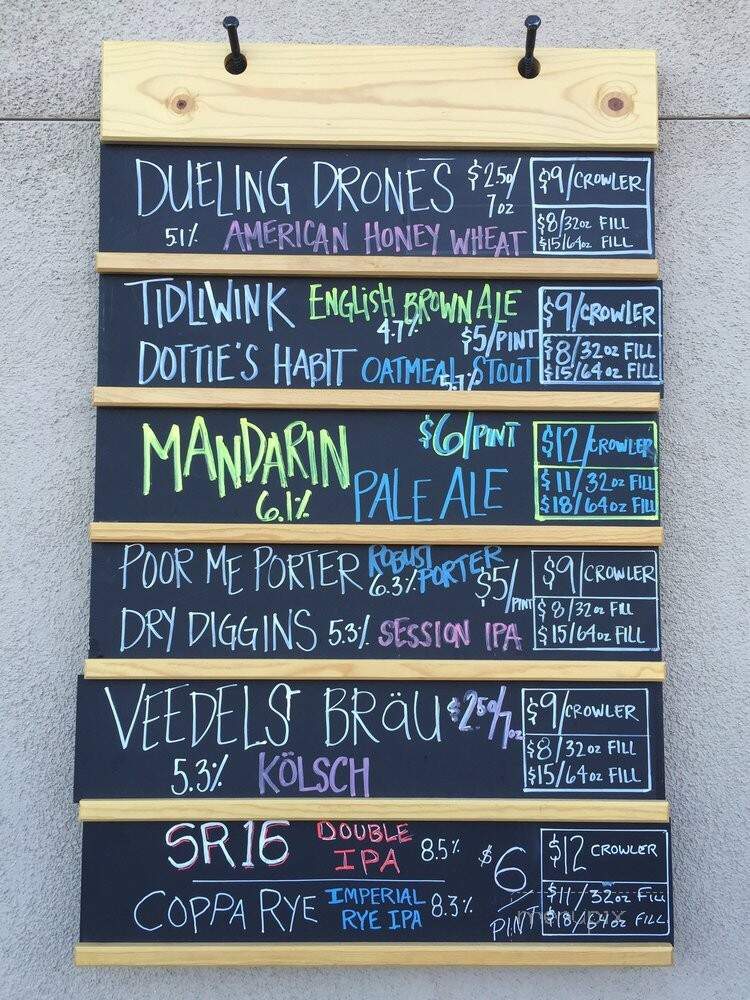 DUELING DRONES $2.50/ 7oz $9/CROWLER
5.1% AMERICAN HONEY WHEAT $8/32oz FILL
$15/64oz FILL
TIDLIWINK ENGLISH BROWN ALE $9/CROWLER
4.7% $5/PINT
DOTTIE'S HABIT OATMEAL STOUT $8/32oz FILL
5.7% $15/64oz FILL
MANDARIN $6/PINT $12/CROWLER
6.1% PALE ALE $11/32oz FILL
$18/64oz FILL
POOR ME PORTER ROBUST PORTER $9/CROWLER
6.3% $5/PINT
DRY DIGGINS 5.3% SESSION IPA $8/32oz FILL
$15/64oz FILL
VEEDELS BRÄU $2.50/7oz $9/CROWLER
5.3% KÖLSCH $8/32oz FILL
$15/64oz FILL
SR16 DOUBLE IPA 8.5% $6 PINT $12 CROWLER
COPPA RYE IMPERIAL RYE IPA 8.3% $11/32oz FILL
$18/64oz FILL
menupix